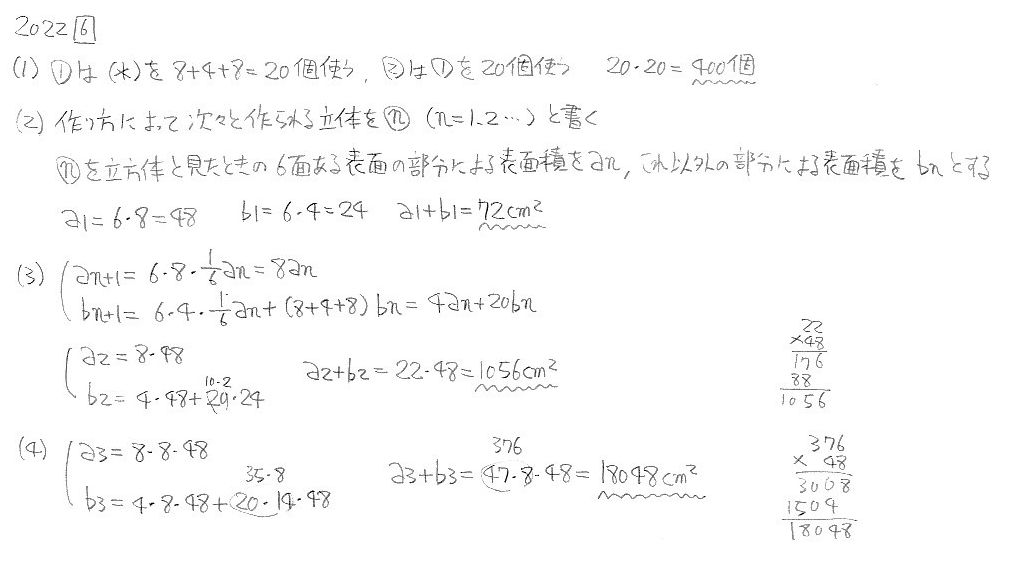 2022 6
(1) ①は(*)を8+4+8=20個使う, ②は①を20個使う 20・20=400個
(2) 作り方によって次々と作られる立体をⓝ (n=1,2…)と書く
ⓝを立方体と見たときの6面ある表面の部分による表面積をan, これ以外の部分による表面積をbnとする
a1=6・8=48 b1=6・4=24 a1+b1=72cm²
(3) an+1=6・8・1/6an=8an
bn+1=6・4・1/6an+(8+4+8)bn=4an+20bn
a2=8・48
10・2
b2=4・48+20・24
a2+b2=22・48=1056cm²
22
×48
176
88
1056
(4) a3=8・8・48
35・8
b3=4・8・48+20・14・48
376
a3+b3=47・8・48=18048cm²
376
× 48
3008
1504
18048